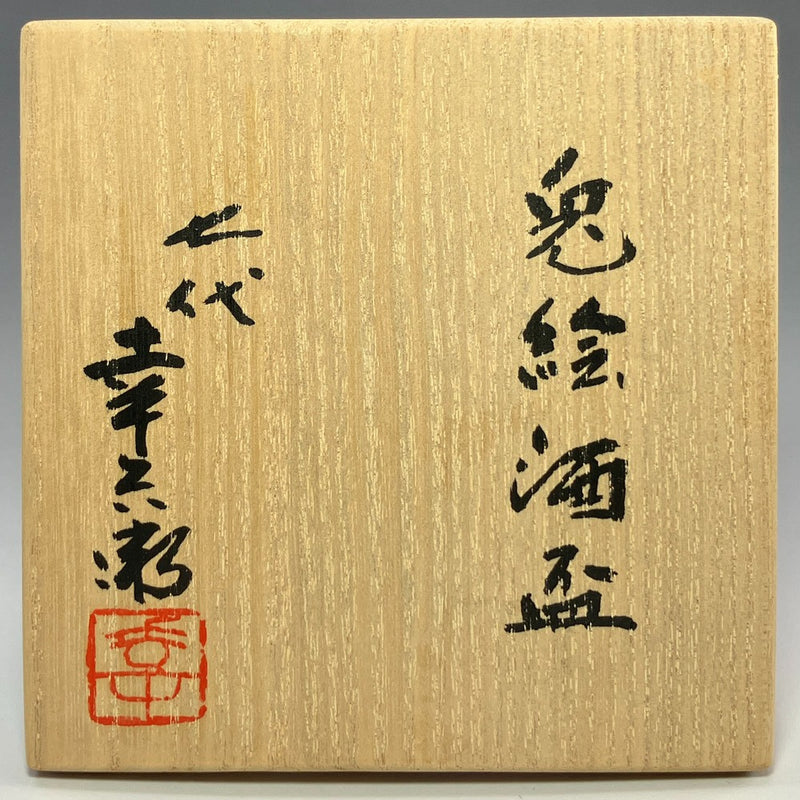 兎絵酒盃
七代
幸兵衛